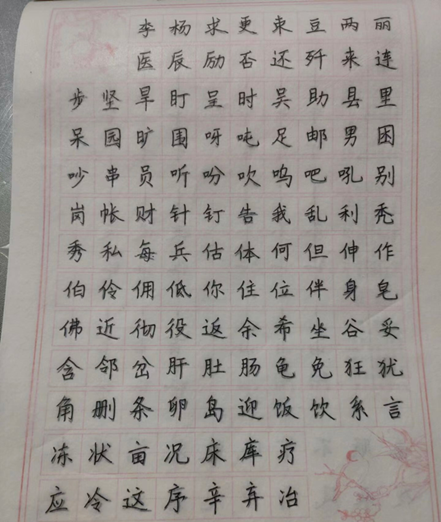 李杨求更束豆两丽
医辰励否还歼来连
步坚旱盯呈时吴助县里
呆园旷围呀吨足邮男困
吵串员听吩吹呜吧吼别
岗帐财针钉告我乱利秃
秀私每兵估体何但伸作
伯伶佣低你住位伴身皂
佛近彻役返余希坐谷妥
含邻岔肝肚肠龟免狂犹
角删条卵岛迎饭饮系言
冻状亩况床库疗
应冷这序辛弃冶